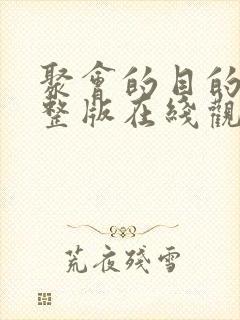 聚會的目的
整版在綫觀
荒夜殘雪